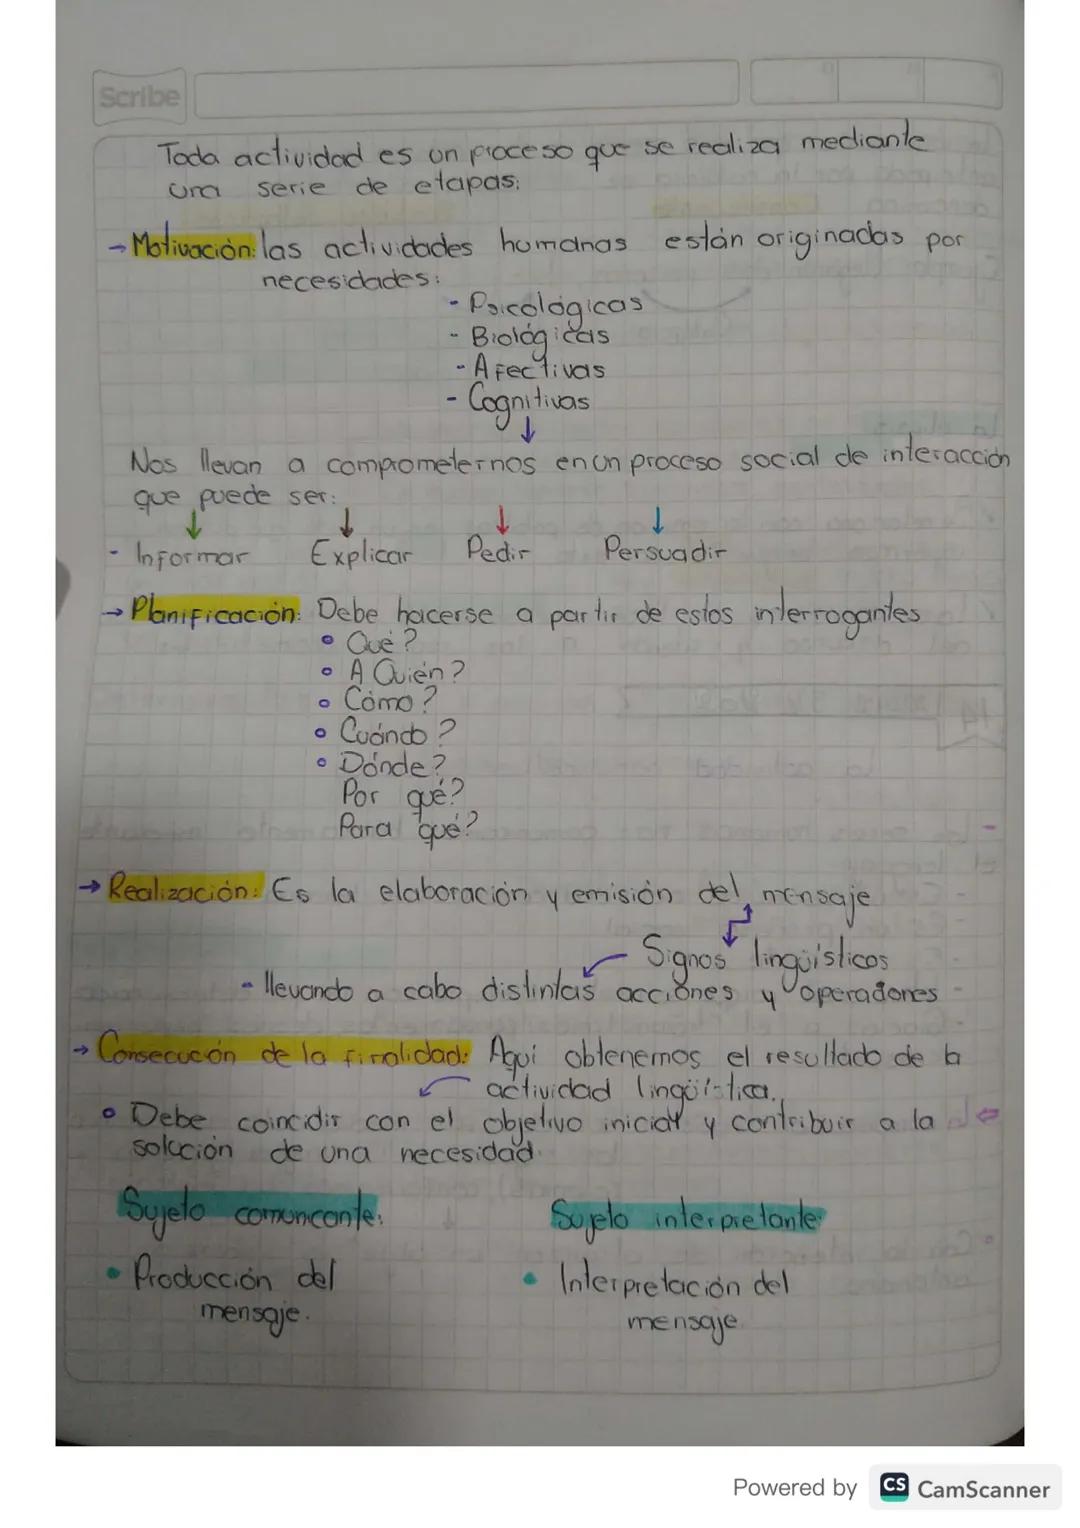 Scribe
Toda actividad es un proceso que se realiza mediante
una serie de etapas:
→ Motivación: las actividades humanas están originadas por
necesidades:
- Psicológicas
- Biológicas
- Afectivas
- Cognitivas
↓
Nos llevan a comprometernos en un proceso social de interacción
que puede ser:
↓ ↓ ↓ ↓
- Informar Explicar Pedir Persuadir
→ Planificación: Debe hacerse a partir de estos interrogantes
• Qué?
• A Quién?
• Cómo?
• Cuándo?
• Dónde?
Por qué?
Para qué?
→ Realización: Es la elaboración y emisión del mensaje
Signos lingüísticos
- llevando a cabo distintas acciones y operadores
→ Consecución de la finalidad: Aquí obtenemos el resultado de la
actividad lingüística.
• Debe coincidir con el objetivo inicial y contribuir a la
solución de una necesidad.
Sujeto comunicante: Sujeto interpretante:
• Producción del • Interpretación del
mensaje. mensaje
Powered by CS CamScanner